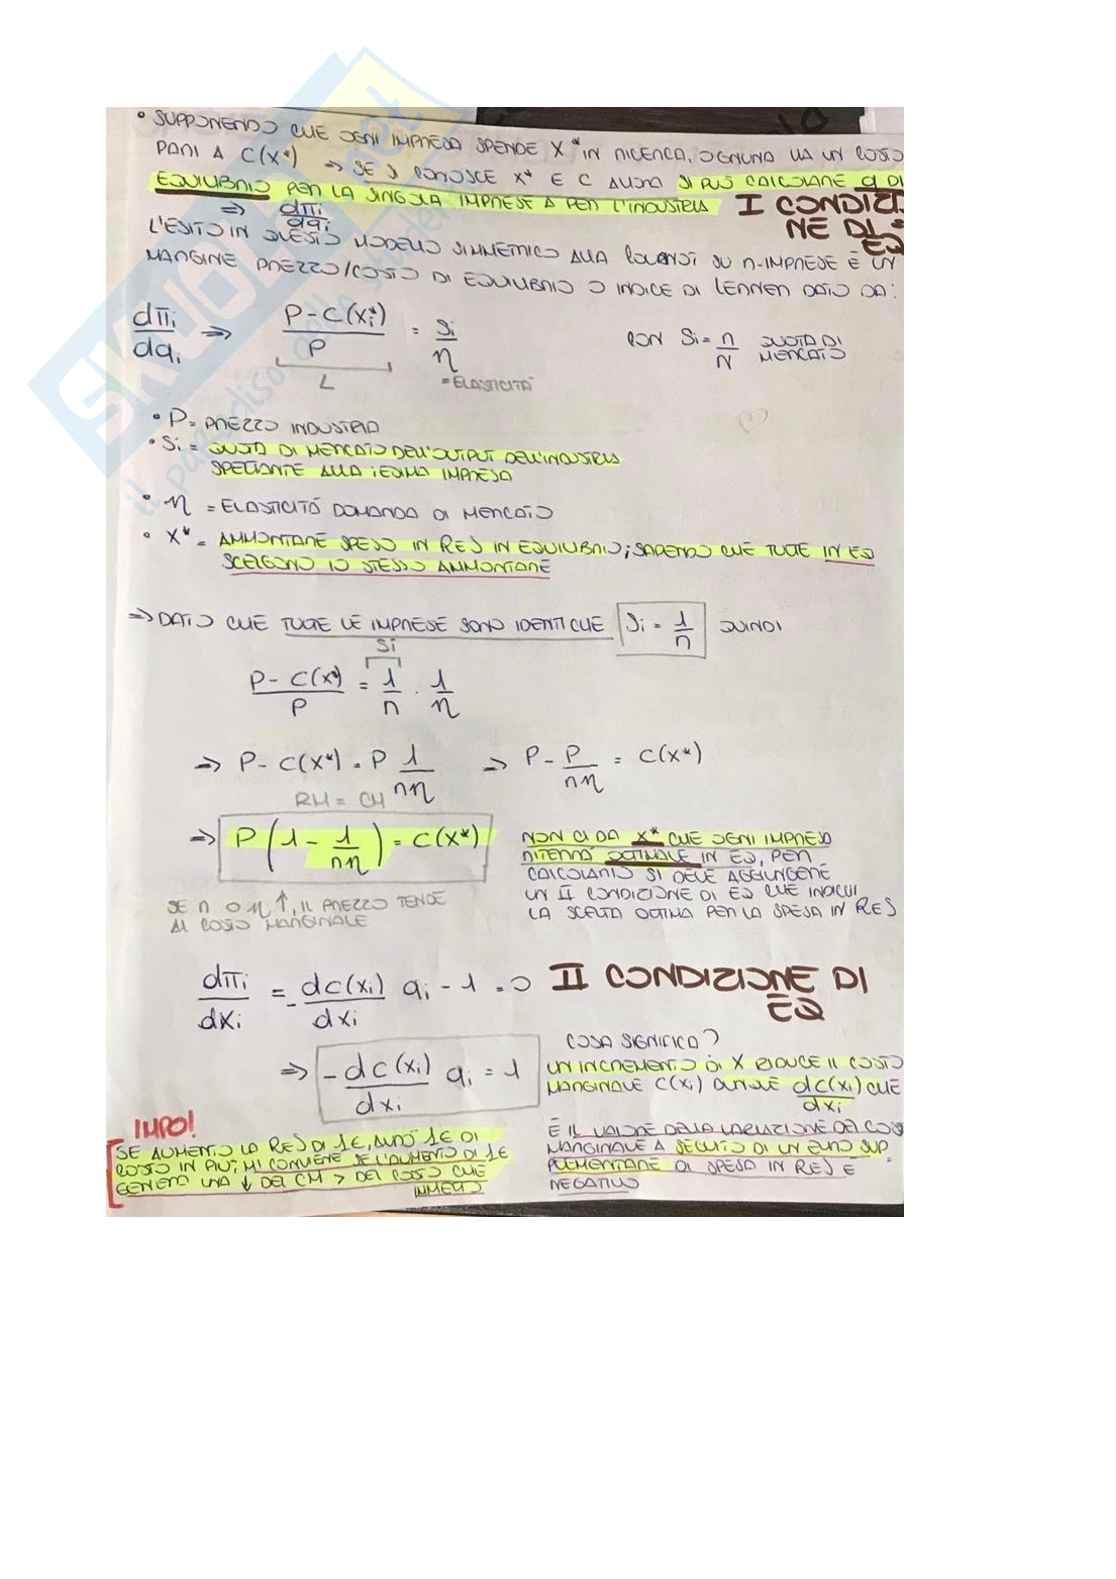 • SUPPONENDO CHE OGNI IMPRESA SPENDE X* IN RICERCA, OGNUNA HA UN COSTO
PARI A C(X*) ⇒ SE SI CONOSCE X* E C ALLORA SI PUÒ CALCOLARE Q DI
EQUILIBRIO PER LA SINGOLA IMPRESE A PER L'INDUSTRIA I CONDIZI
⇒ dπi/dqi NE DI
EQ
L'ESITO IN QUESTO MODELLO SIMMETRICO ALLA COURNOT SU N-IMPRESE È UN
MARGINE PREZZO/COSTO DI EQUILIBRIO O INDICE DI LERNER DATO DA:
dπi/dqi ⇒ (P - C(Xi*))/P = Si/η CON Si = n/N QUOTA DI MERCATO
L = ELASTICITÀ
• P = PREZZO INDUSTRIA
• Si = QUOTA DI MERCATO DELL'OUTPUT DELL'INDUSTRIA
SPETTANTE ALLA iESIMA IMPRESA
• η = ELASTICITÁ DOMANDA DI MERCATO
• X* = AMMONTARE SPESO IN RES IN EQUILIBRIO; SAPENDO CHE TUTTE IN EQ
SCELGONO LO STESSO AMMONTARE
⇒ DATO CHE TUTTE LE IMPRESE SONO IDENTICHE Si = 1/n QUINDI
Si
(P - C(X*))/P = 1/n · 1/η
⇒ P - C(X*) = P 1/nη ⇒ P - P/nη = C(X*)
RM = CM
⇒ P (1 - 1/nη) = C(X*)
NON CI DA X* CHE OGNI IMPRESA
RITERRÁ OTTIMALE IN EQ, PER
CALCOLARLO SI DEVE AGGIUNGERE
UN II CONDIZIONE DI EQ CHE INDICHI
LA SCELTA OTTIMA PER LA SPESA IN RES
SE n O η ↑, IL PREZZO TENDE
AL COSTO MARGINALE
dπi/dXi = - dC(Xi)/dXi qi - 1 = 0 II CONDIZIONE DI
EQ
⇒ - dC(Xi)/dXi qi = 1
COSA SIGNIFICA?
UN INCREMENTO DI X RIDUCE IL COSTO
MARGINALE C(Xi) QUINDI dC(Xi)/dXi CHE
È IL VALORE DELLA VARIAZIONE DEL COS
MARGINALE A SEGUITO DI UN EURO SUP
PLEMENTARE DI SPESA IN RES È
NEGATIVO
IMPO!
SE AUMENTO LA RES DI 1€, AVRÒ 1€ DI
COSTO IN PIÙ; MI CONVIENE SE L'AUMENTO DI 1€
GENERA UNA ↓ DEL CM > DEL COSTO CHE
IMMETTO
SKUOLA.net
il paradiso dello studente